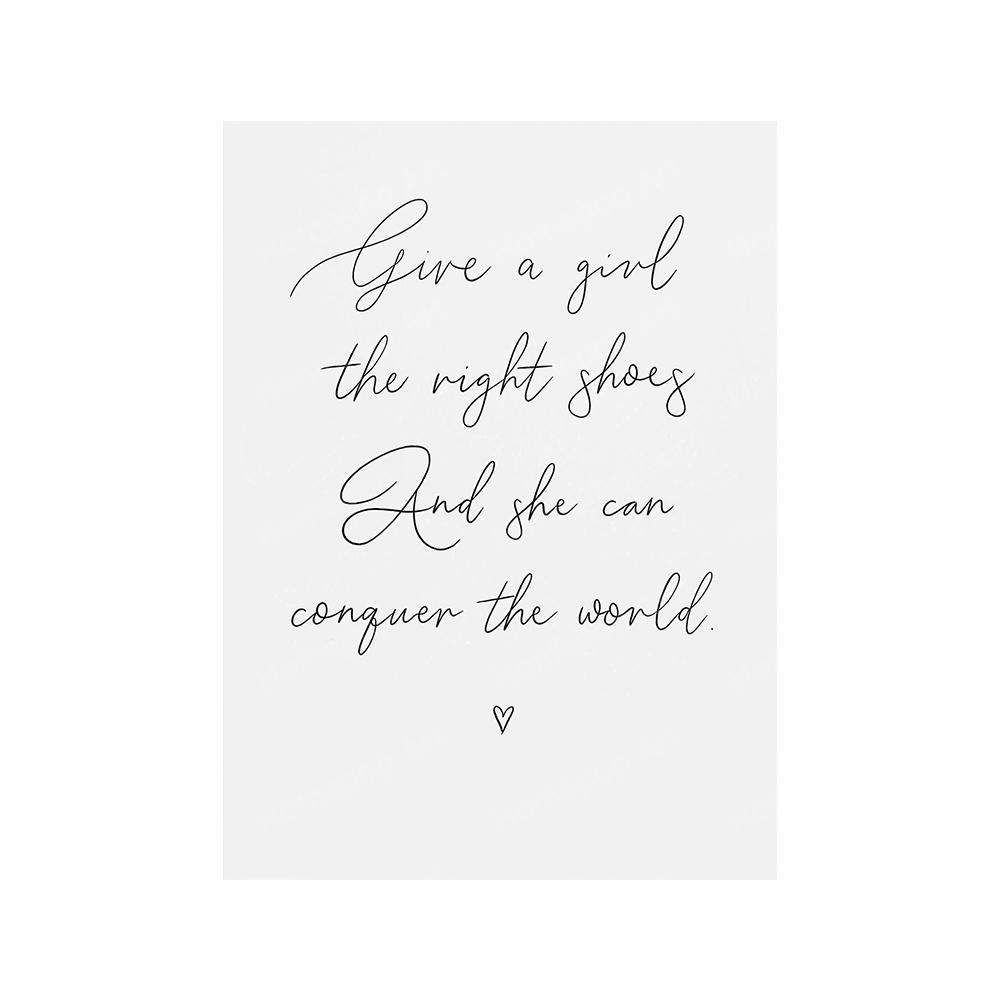 Give a girl
the right shoes
And she can
conquer the world.